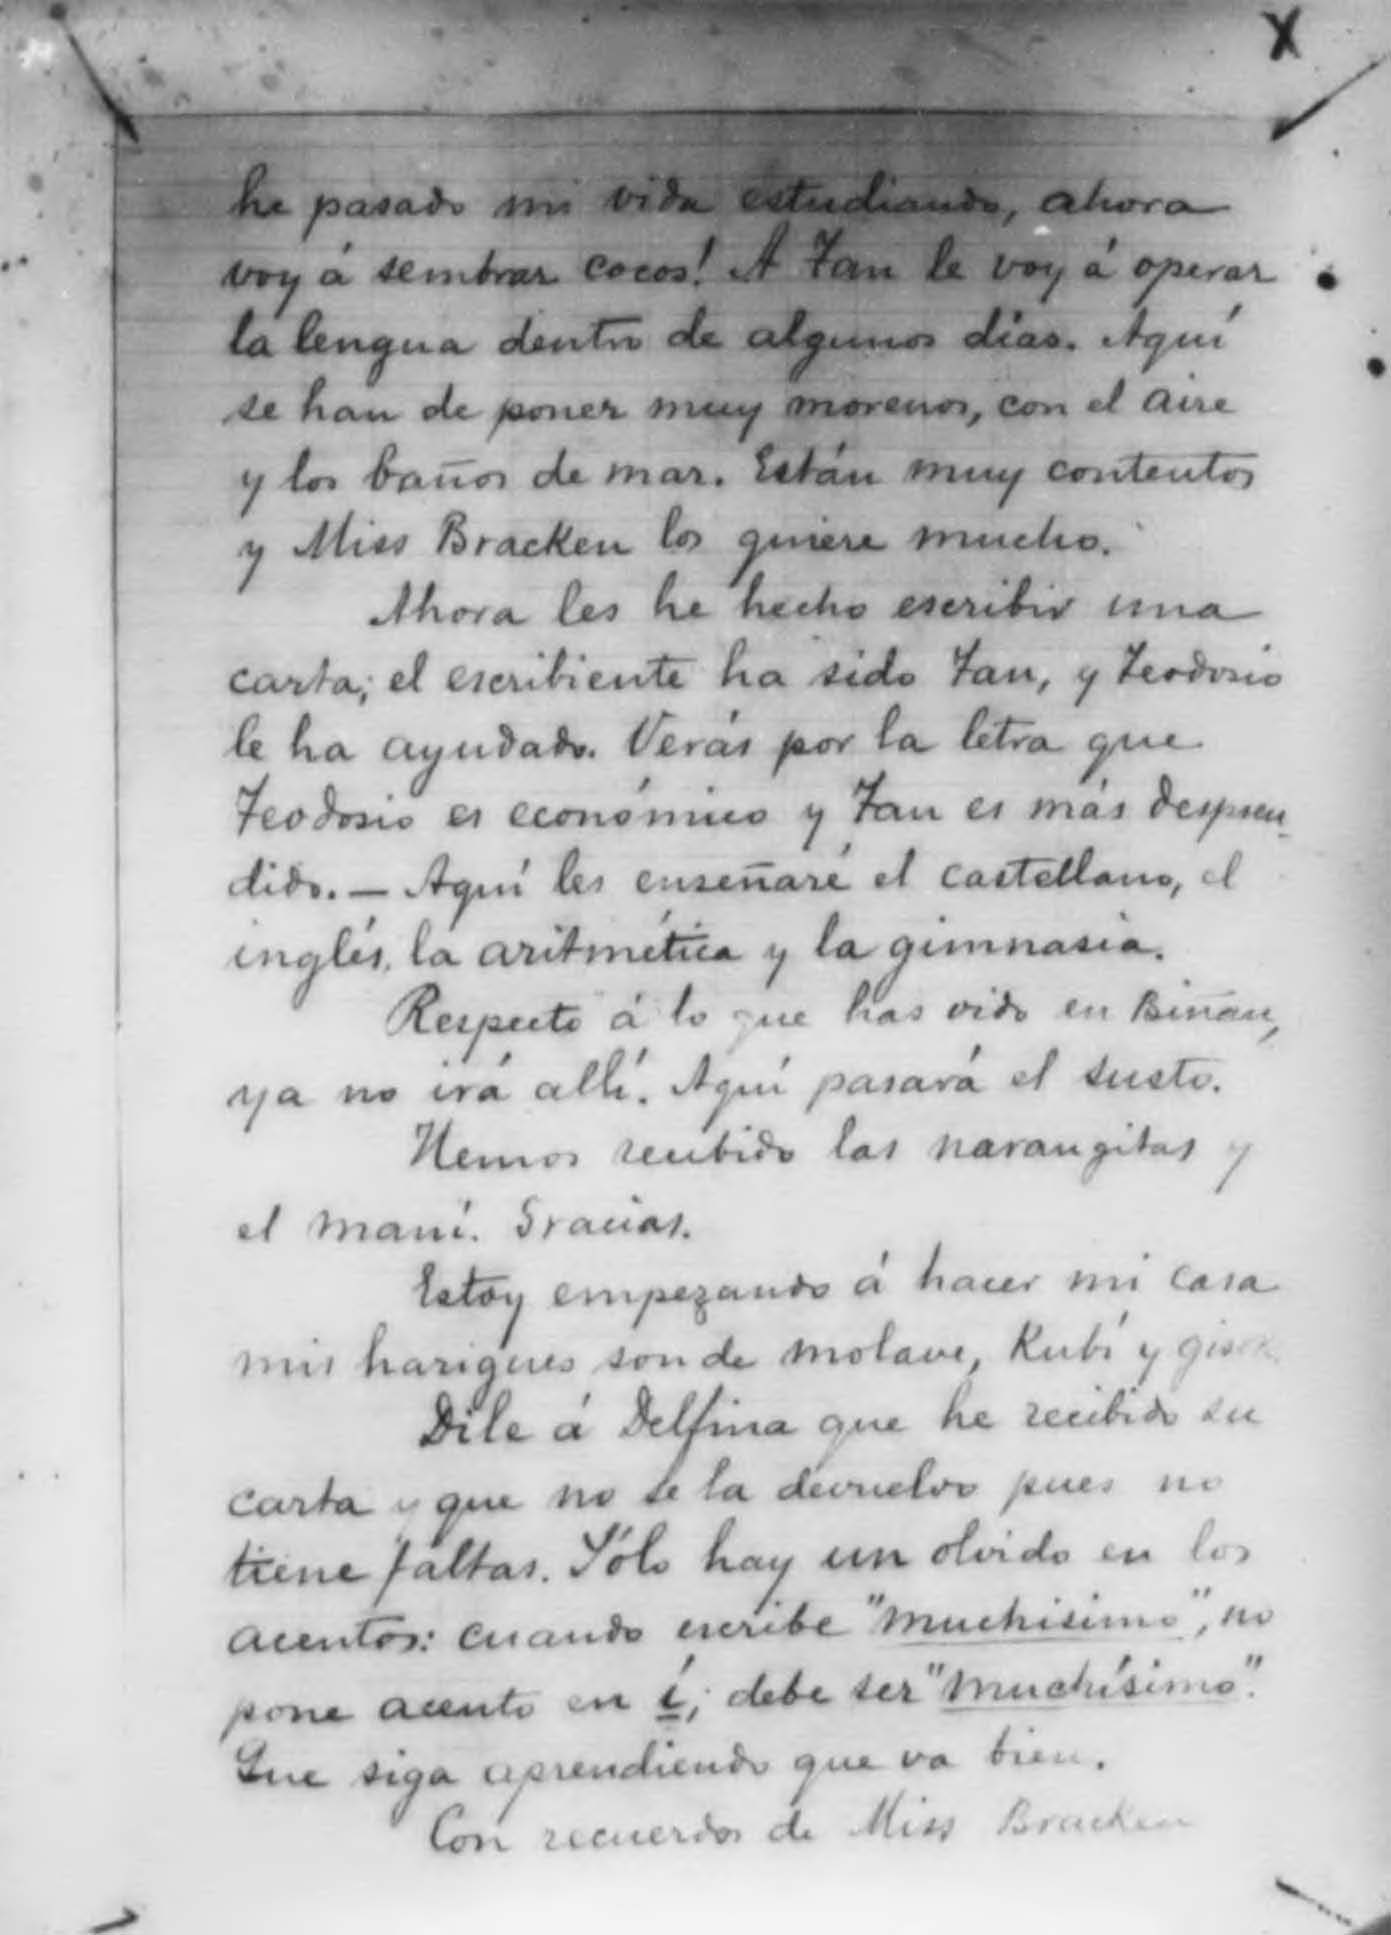 X
he pasado mi vida estudiando, ahora
voy á sembrar cocos! A Tan le voy á operar
la lengua dentro de algunos días. Aquí
se han de poner muy morenos, con el aire
y los baños de mar. Están muy contentos
y Miss Bracken los quiere mucho.
Ahora les he hecho escribir una
carta; el escribiente ha sido Tan, y Teodosio
le ha ayudado. Verás por la letra que
Teodosio es económico y Tan es más despren-
dido. — Aquí les enseñaré el castellano, el
inglés, la aritmética y la gimnasia.
Respecto á lo que has oido en Biñan,
ya no irá allí. Aquí pasará el susto.
Hemos recibido las narangitas y
el maní. Gracias.
Estoy empezando á hacer mi casa
mis harigues son de molave, Kubí y
Dile á Delfina que he recibido su
carta y que no se la devuelvo pues no
tiene faltas. Sólo hay un olvido en los
acentos: cuando escribe "muchisimo", no
pone acento en í; debe ser "muchísimo".
Que siga aprendiendo que va bien.
Con recuerdos de Miss Bracken